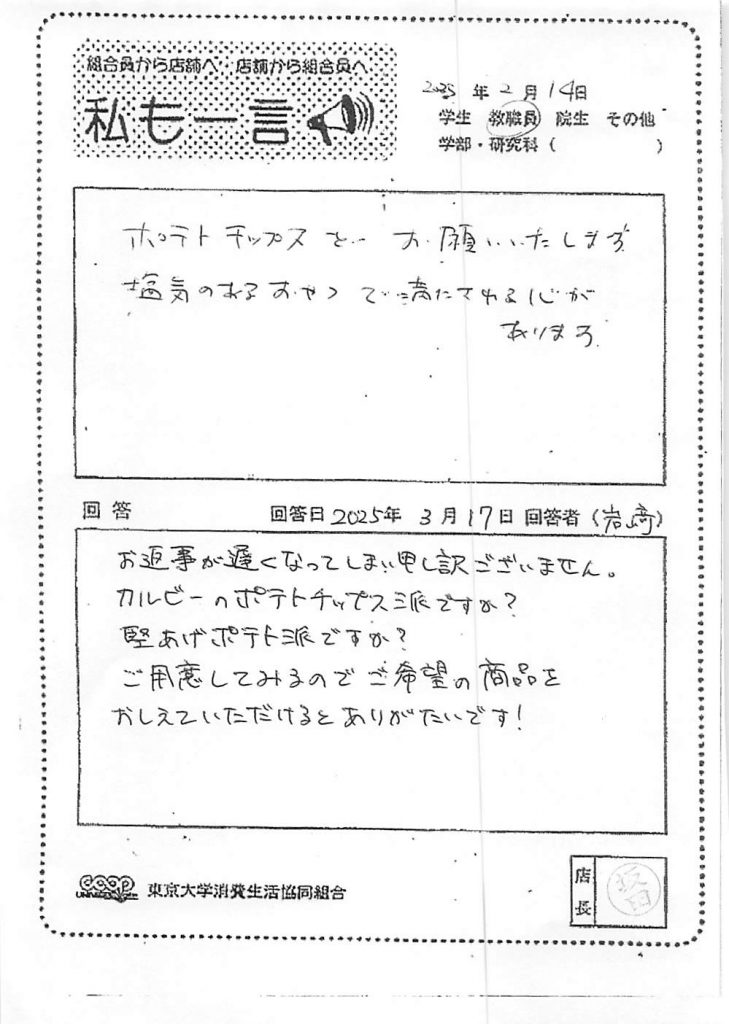 組合員から店舗へ 店舗から組合員へ
私も一言
2025 年 2 月 14日
学生 教職員 院生 その他
学部・研究科（ ）
ポテトチップスを お願いいたします
塩気のあるおやつで満たされる心が
あります
回答 回答日 2025年 3月 17日 回答者（岩崎）
お返事が遅くなってしまい申し訳ございません。
カルビーのポテトチップス派ですか？
堅あげポテト派ですか？
ご用意してみるのでご希望の商品を
おしえていただけるとありがたいです！
coop 東京大学消費生活協同組合
店長